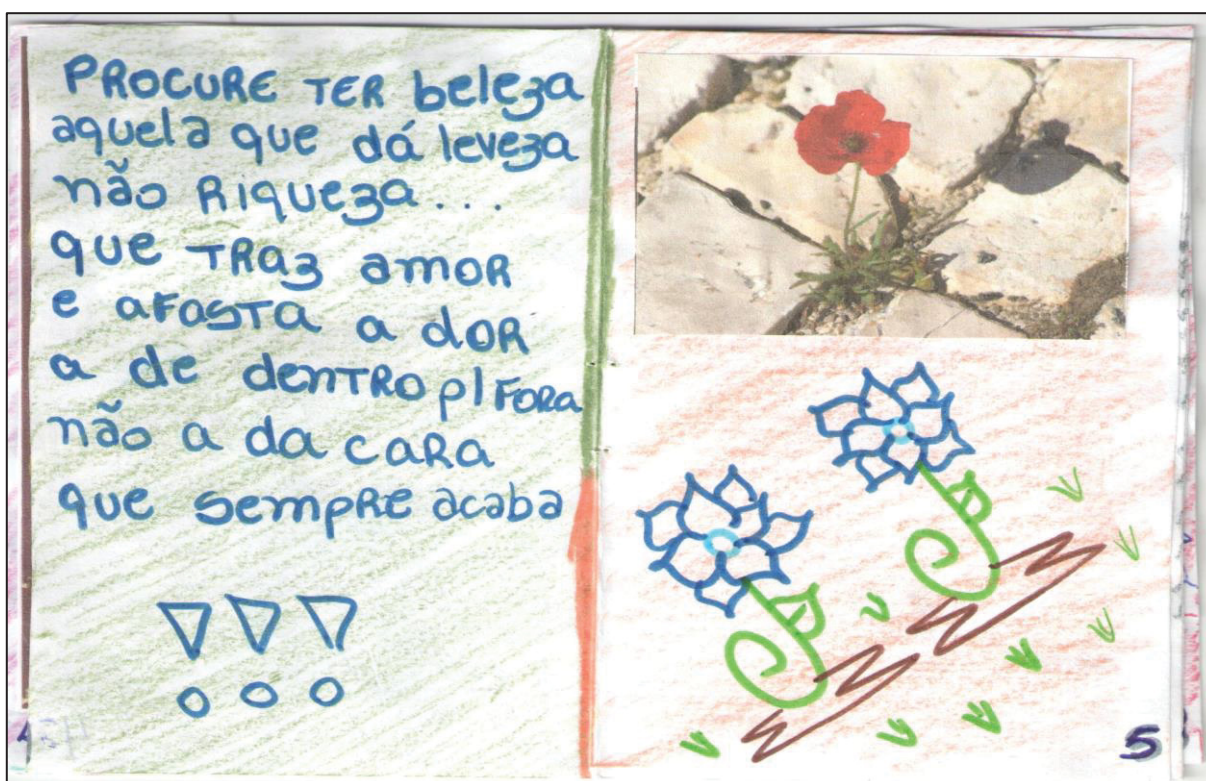 PROCURE TER beleza
aquela que dá leveza
não Riqueza...
que TRaz amoR
e aFasTa a doR
a de denTRo p/ FoRa
não a da caRa
que sempRe acaba
!!!
4
5